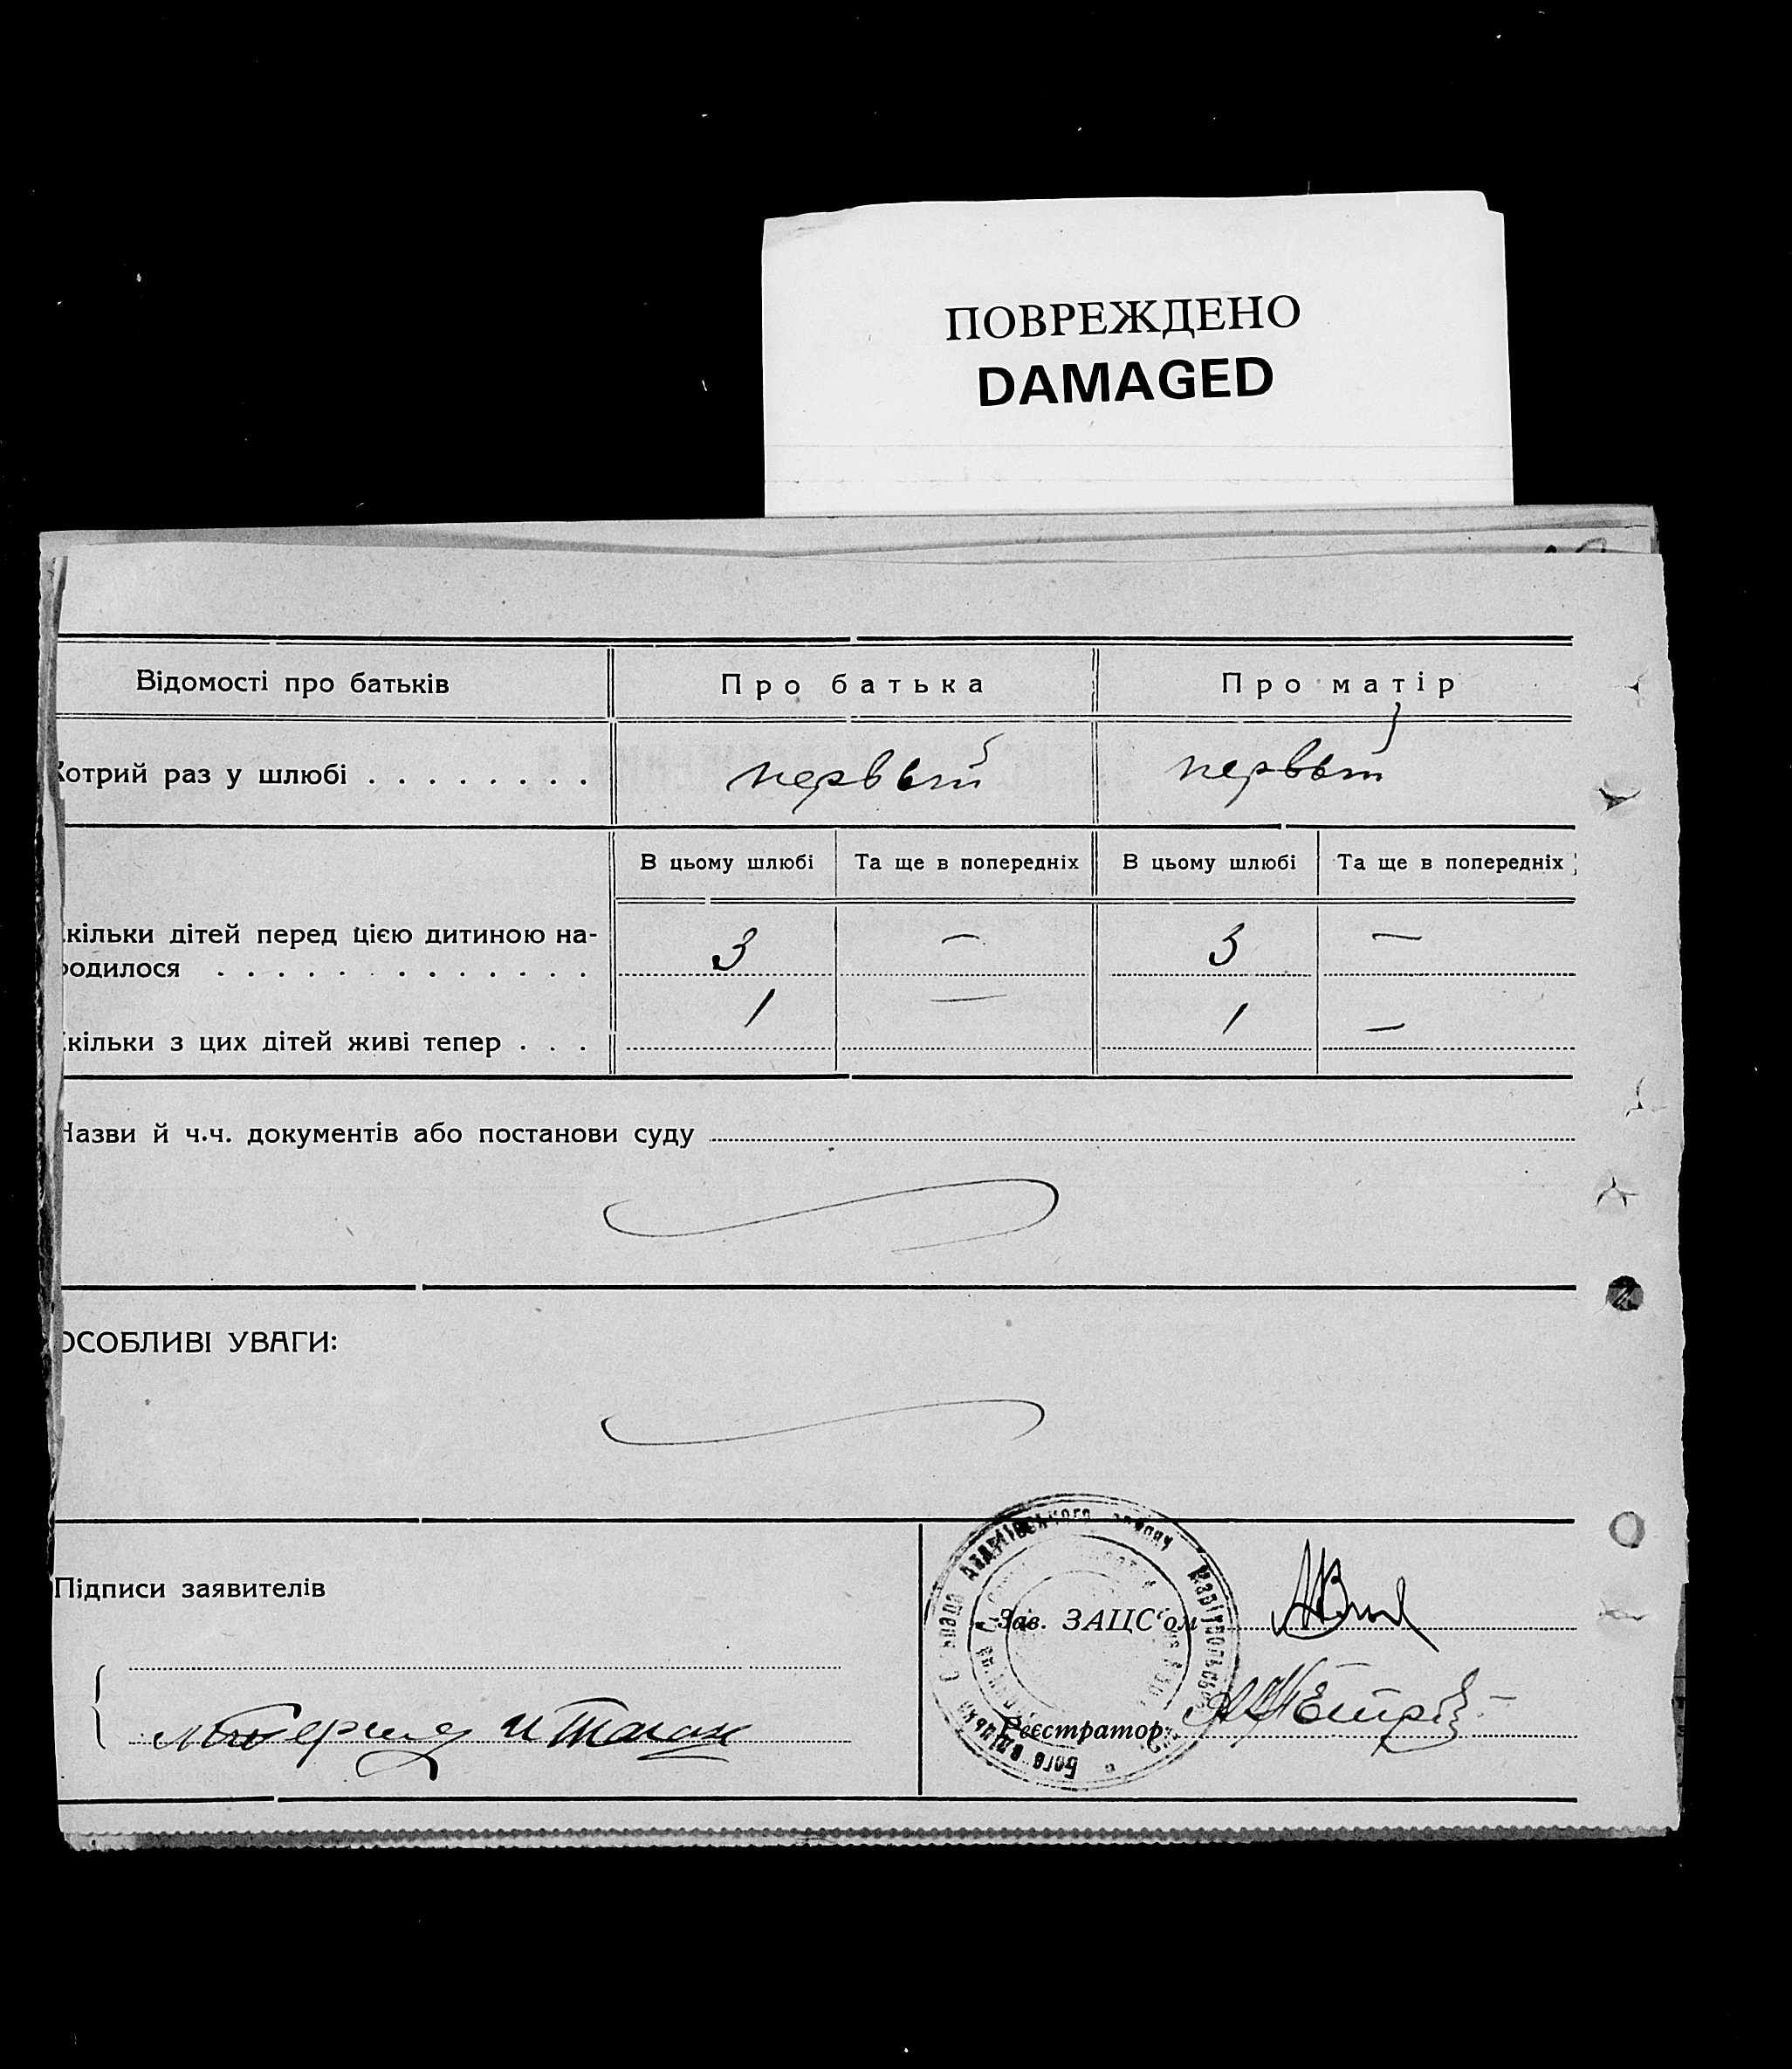 ПОВРЕЖДЕНО
DAMAGED
Відомості про батьків
Про батька
Про матір
Котрий раз у шлюбі . . . . . . . .
первый
первый
В цьому шлюбі
Та ще в попередніх
В цьому шлюбі
Та ще в попередніх
кільки дітей перед цією дитиною на-
родилося . . . . . . . . . . . . .
3
—
3
—
1
—
1
—
кільки з цих дітей живі тепер . . .
Назви й ч.ч. документів або постанови суду
ОСОБЛИВІ УВАГИ:
Підписи заявителів
Зав. ЗАЦС‘ом
Реєстратор